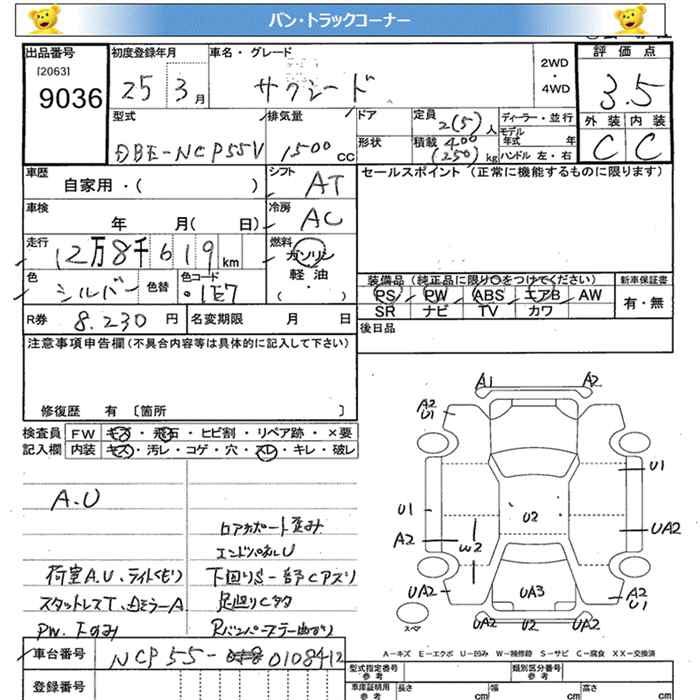 バン・トラックコーナー
出品番号
[2063]
9036
初度登録年月
25 3月
車名・グレード
サクシード
2WD
・
4WD
評価点
3.5
外装 内装
C C
型式
DBE-NCP55V
排気量
1500 cc
ドア
形状
定員
2(5)人
積載 400
(250) kg
ディーラー・並行
モデル
年式 年
ハンドル 左・右
車歴
自家用・( )
シフト
AT
セールスポイント(正常に機能するものに限ります)
車検
年 月( 日)
冷房
AC
走行
12万8千619km
燃料
ガソリン
軽油
( ・ )
色
シルバー
色替
色コード
・1E7
装備品(純正品に限り○をつけてください)
PS PW ABS エアB AW
SR ナビ TV カワ
新車保証書
有・無
R券 8.230円
名変期限 月 日
後日品
注意事項申告欄(不具合内容等は具体的に記入して下さい)
修復歴 有 〔箇所 〕
検査員 FW キズ・飛石・ヒビ割・リペア跡・×要
記入欄 内装 キズ・汚レ・コゲ・穴・スレ・キレ・破レ
A.U
荷室A.U、ライトくもり
スタットレスT、
PW、下のみ
ロアサポート歪み
エンドパネルU
下回りS
足廻りCサタ
A1 A2
A2
U1
U1
U1
U2
A2
W2
UA2
UA2
UA3
A2
U1
UA2 U2 UA2
スペア
A−キズ E−エクボ U−凹み W−補修跡 S−サビ C−腐食 XX−交換済
車台番号 NCP55-0108412
登録番号
型式指定番号
参考
類別区分番号
参考
車庫証明用
参考
長さ cm
幅 cm
高さ cm